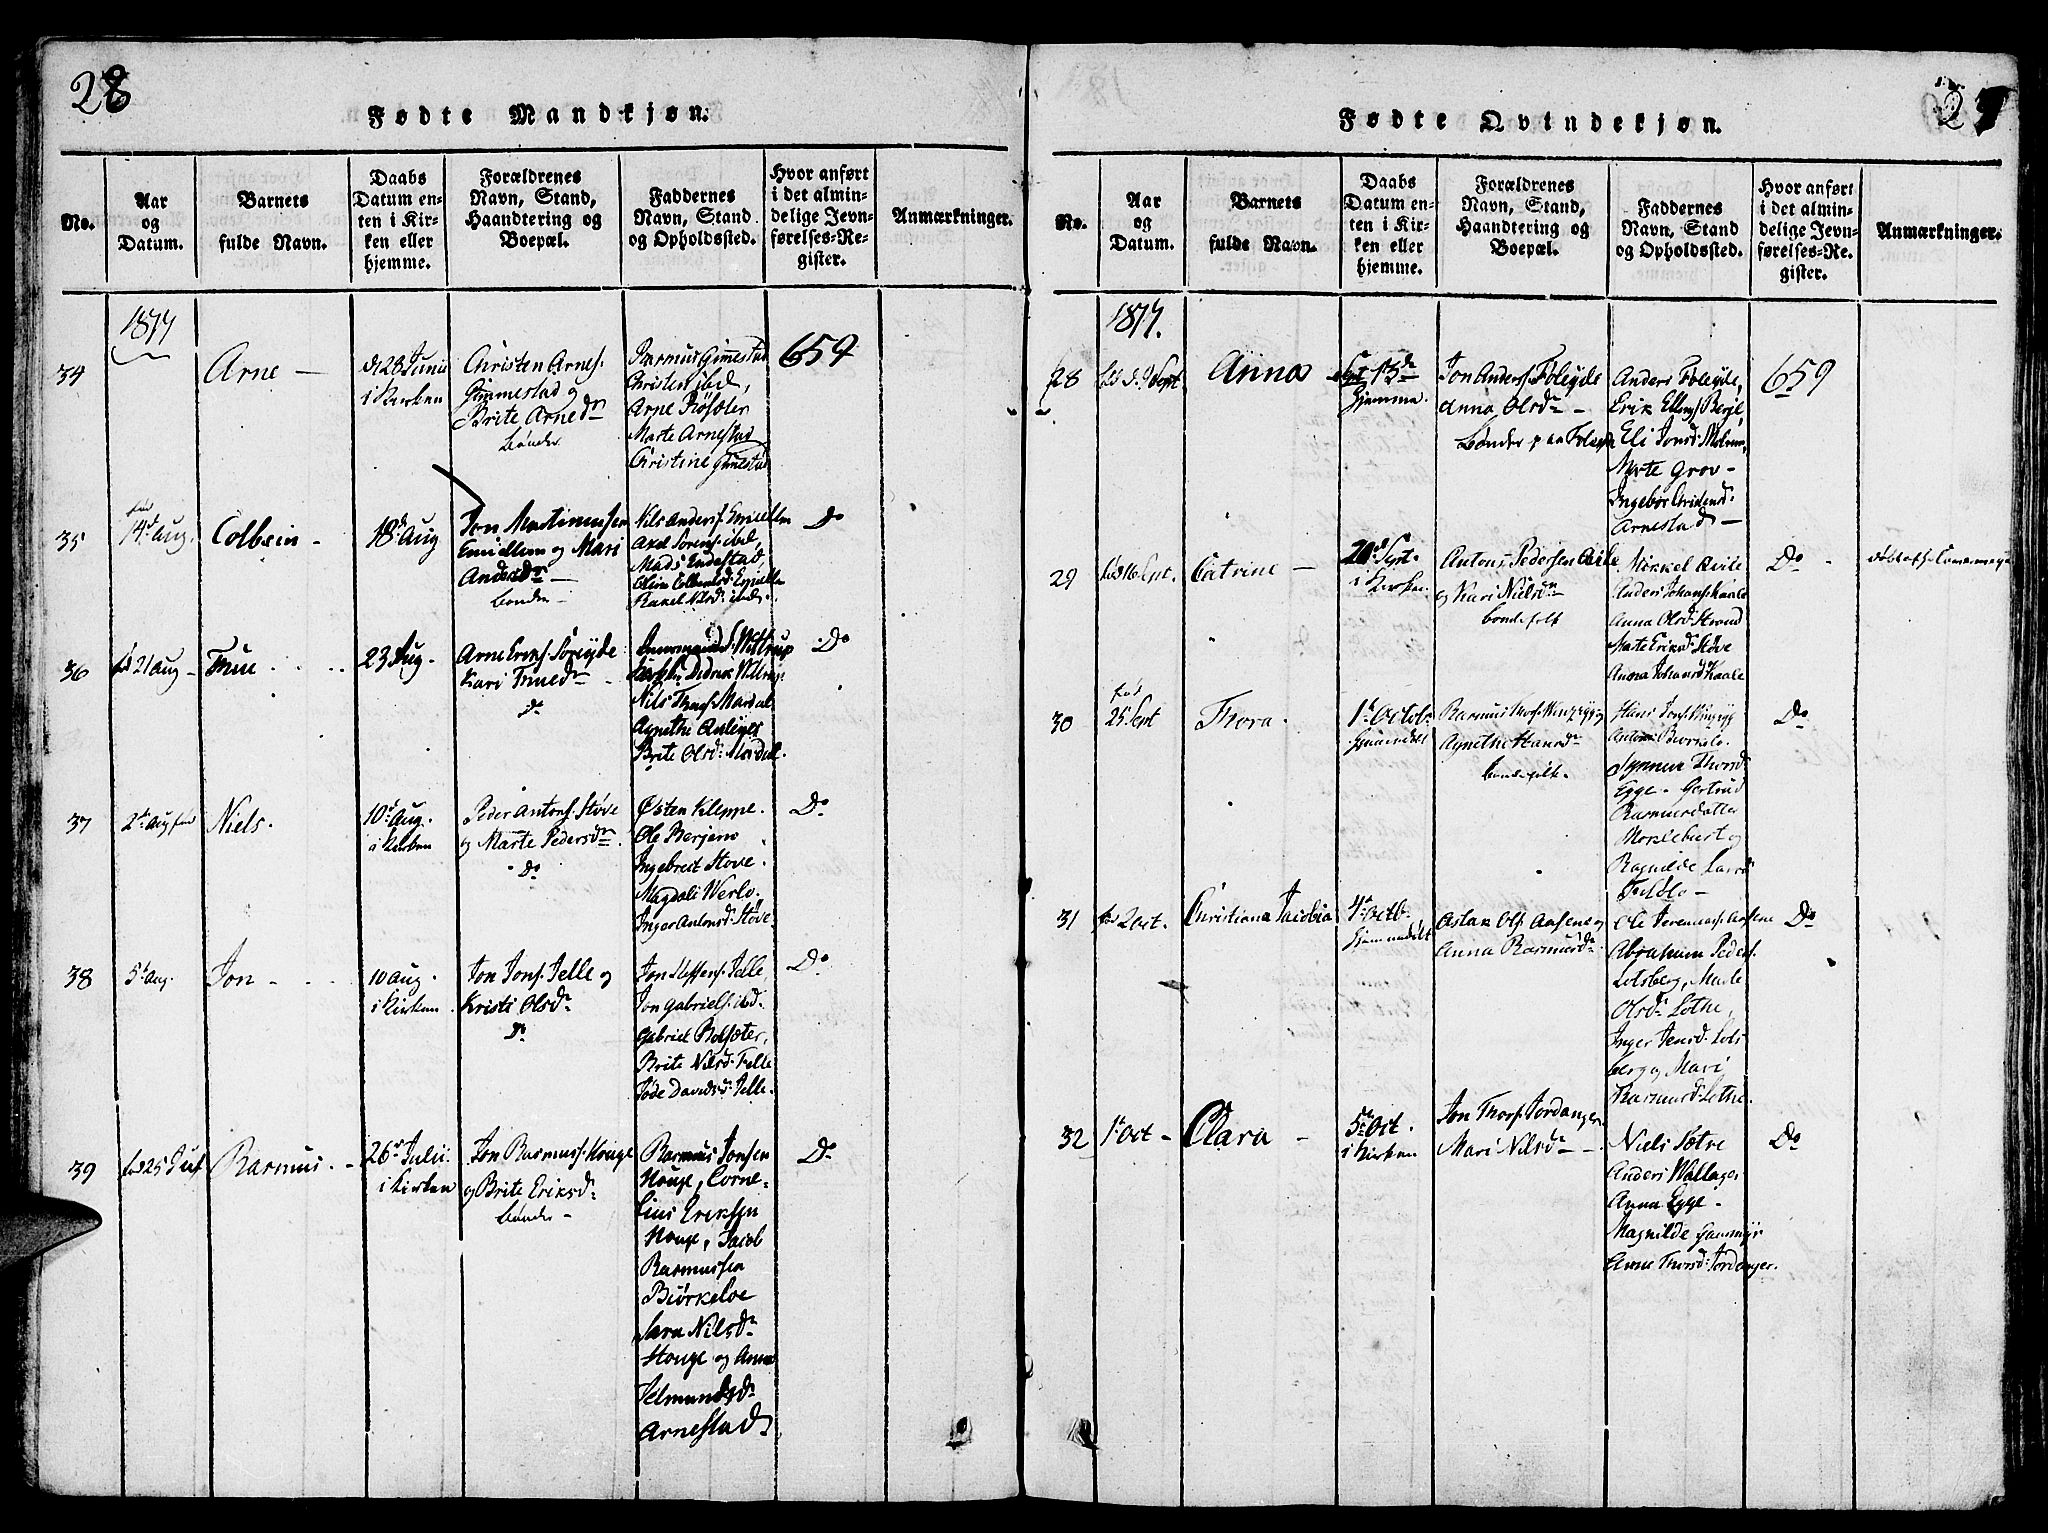 28
Fødte Mandkjøn.
No.
Aar
og
Datum.
Barnets
fulde Navn.
Daabs
Datum en-
ten i Kir-
ken eller
hjemme.
Forældrenes
Navn, Stand,
Haandtering og
Boepæl.
Faddernes
Navn, Stand
og Opholdssted.
Hvor anført
i det almin-
delige Jevn-
førelses-Re-
gister.
Anmærkninger.
1817
34
Arne
d 28 Junii
i Kirken
Christen Arnes.
Gimmestad og
Brite Arnedr
bønder
Rasmus Gimestad
Christen ibid,
Arne
Marte Arnestad
Christine Gimestad
659
35
fød
14d Aug.
Colbein
18d Aug
Jon Martinussen
og Mari
Andersdr
bønder
Nils Anders.
Axel Sørens. ibid,
Mads Endestad,
Rakel Nilsd. ibid.
Do
36
fød 21 Aug
23 Aug.
Arne Eriks.
Kari
Do
Didrik
Nils
Agnethe
Brite Olsd.
Do
37
2d Aug fød
Niels.
10d Aug.
i Kirken
Peder Antons. Støve
og Marte Pedersdr
Do
Østen Kleppe.
Ole Berjem
Ingebret Støve.
Magdali Werlo.
Inger Antonsd. Støve.
Do
38
5t Aug.
Jon
10 Aug.
i Kirken
Jon Jons. Felle og
Kristi Olsdr
Do
Jon Steffens. Felle
Jon Gabriels. ibid.
Gabriel
Brite Nilsd. Felle
Davidsd. Felle.
Do
39
fød 25 Jul
Rasmus.
26d Julii.
i Kirken
Jon Rasmuss. Houge
og Brite Eriksd.
bønder
Rasmus Jonsen
Houge, Corne-
lius Eriksen
Houge, Jacob
Rasmussen
Biørkeloe
Sara Nilsdr
Houge og Anna
Arnestad
Do
27
Fødte Qvindekjøn.
No.
Aar
og
Datum.
Barnets
fulde Navn.
Daabs
Datum en-
ten i Kir-
ken eller
hjemme.
Forældrenes
Navn, Stand,
Haandtering og
Boepæl.
Faddernes
Navn, Stand
og Opholdssted.
Hvor anført
i det almin-
delige Jevn-
førelses-Re-
gister.
Anmærkninger.
1817.
28
Anna
13de
hjemme.
Jon Anders. Føleyde
Anna Olsdr
bønder paa
Anders Føleyde,
Erik
Eli Jonsd.
Marte Grov
Arnestad
659
29
fød 16 Sept.
Catrine
20d Sept.
i Kirken
Antons Pedersen
og Kari Nielsdr
bondefolk
Mikkel
Anders Johans. Kaale
Anna Olsd. Strand
Marte Eriksd. Støve
Anna Johansd. Kaale
Do
30
fød
25 Sept
Thora.
1d Octob.
Rasmus Thors.
Agnethe Hansdr
bondefolk.
Hans Jons.
Synneva Thorsd.
Egge. Gertrud
Rasmusdatter
Moklebust og
Ragnilde
Do
31
fød 2 Oct.
Christiana Jacobia
4d Octb.
Aslak Ols. Aasene og
Anna Rasmusdr
Ole Aasene
Abraham Peders.
Lotsberg, Marte
Olsd. Lothe,
Inger Jensd. Lots-
berg og Mari
Rasmusd. Lothe.
Do
32
1d Oct
Clara
5d Oct.
i Kirken
Jon Thors. Jordanger
Mari Nilsdr
Niels Sætre
Anders
Anna Egge.
Magnilde
Anne Thorsd. Jordanger.
Do